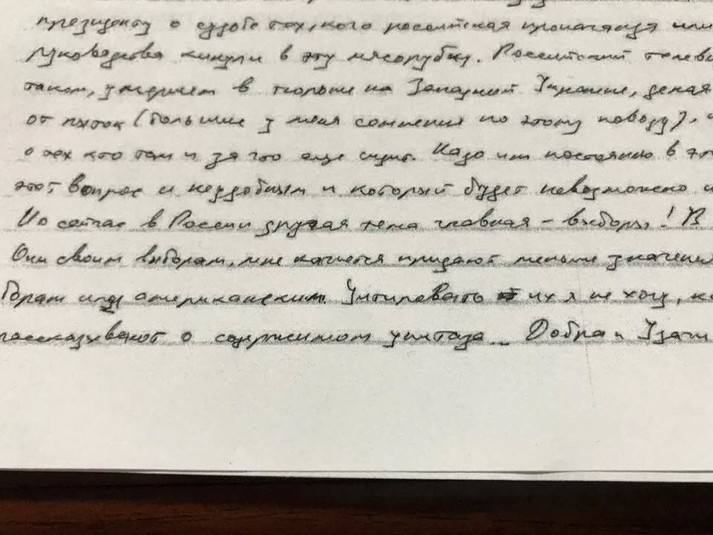 президенту о судьбе тех, кого российская пропаганда или
руководства кинули в эту мясорубку. Российский
таком, умершем в тюрьме на Западной Украине, делая
от пыток (большие у меня сомнения по этому поводу),
о тех кто там и за что еще сидит. Надо им постоянно в
этот вопрос и неудобным и который будет невозможно
Но сейчас в России другая тема главная - выборы! В
Они своим выборам, мне кажется придают меньше значения
чем американским. Цитировать их я не хочу,
рассказывают о содержимом унитаза... Добра и Удачи